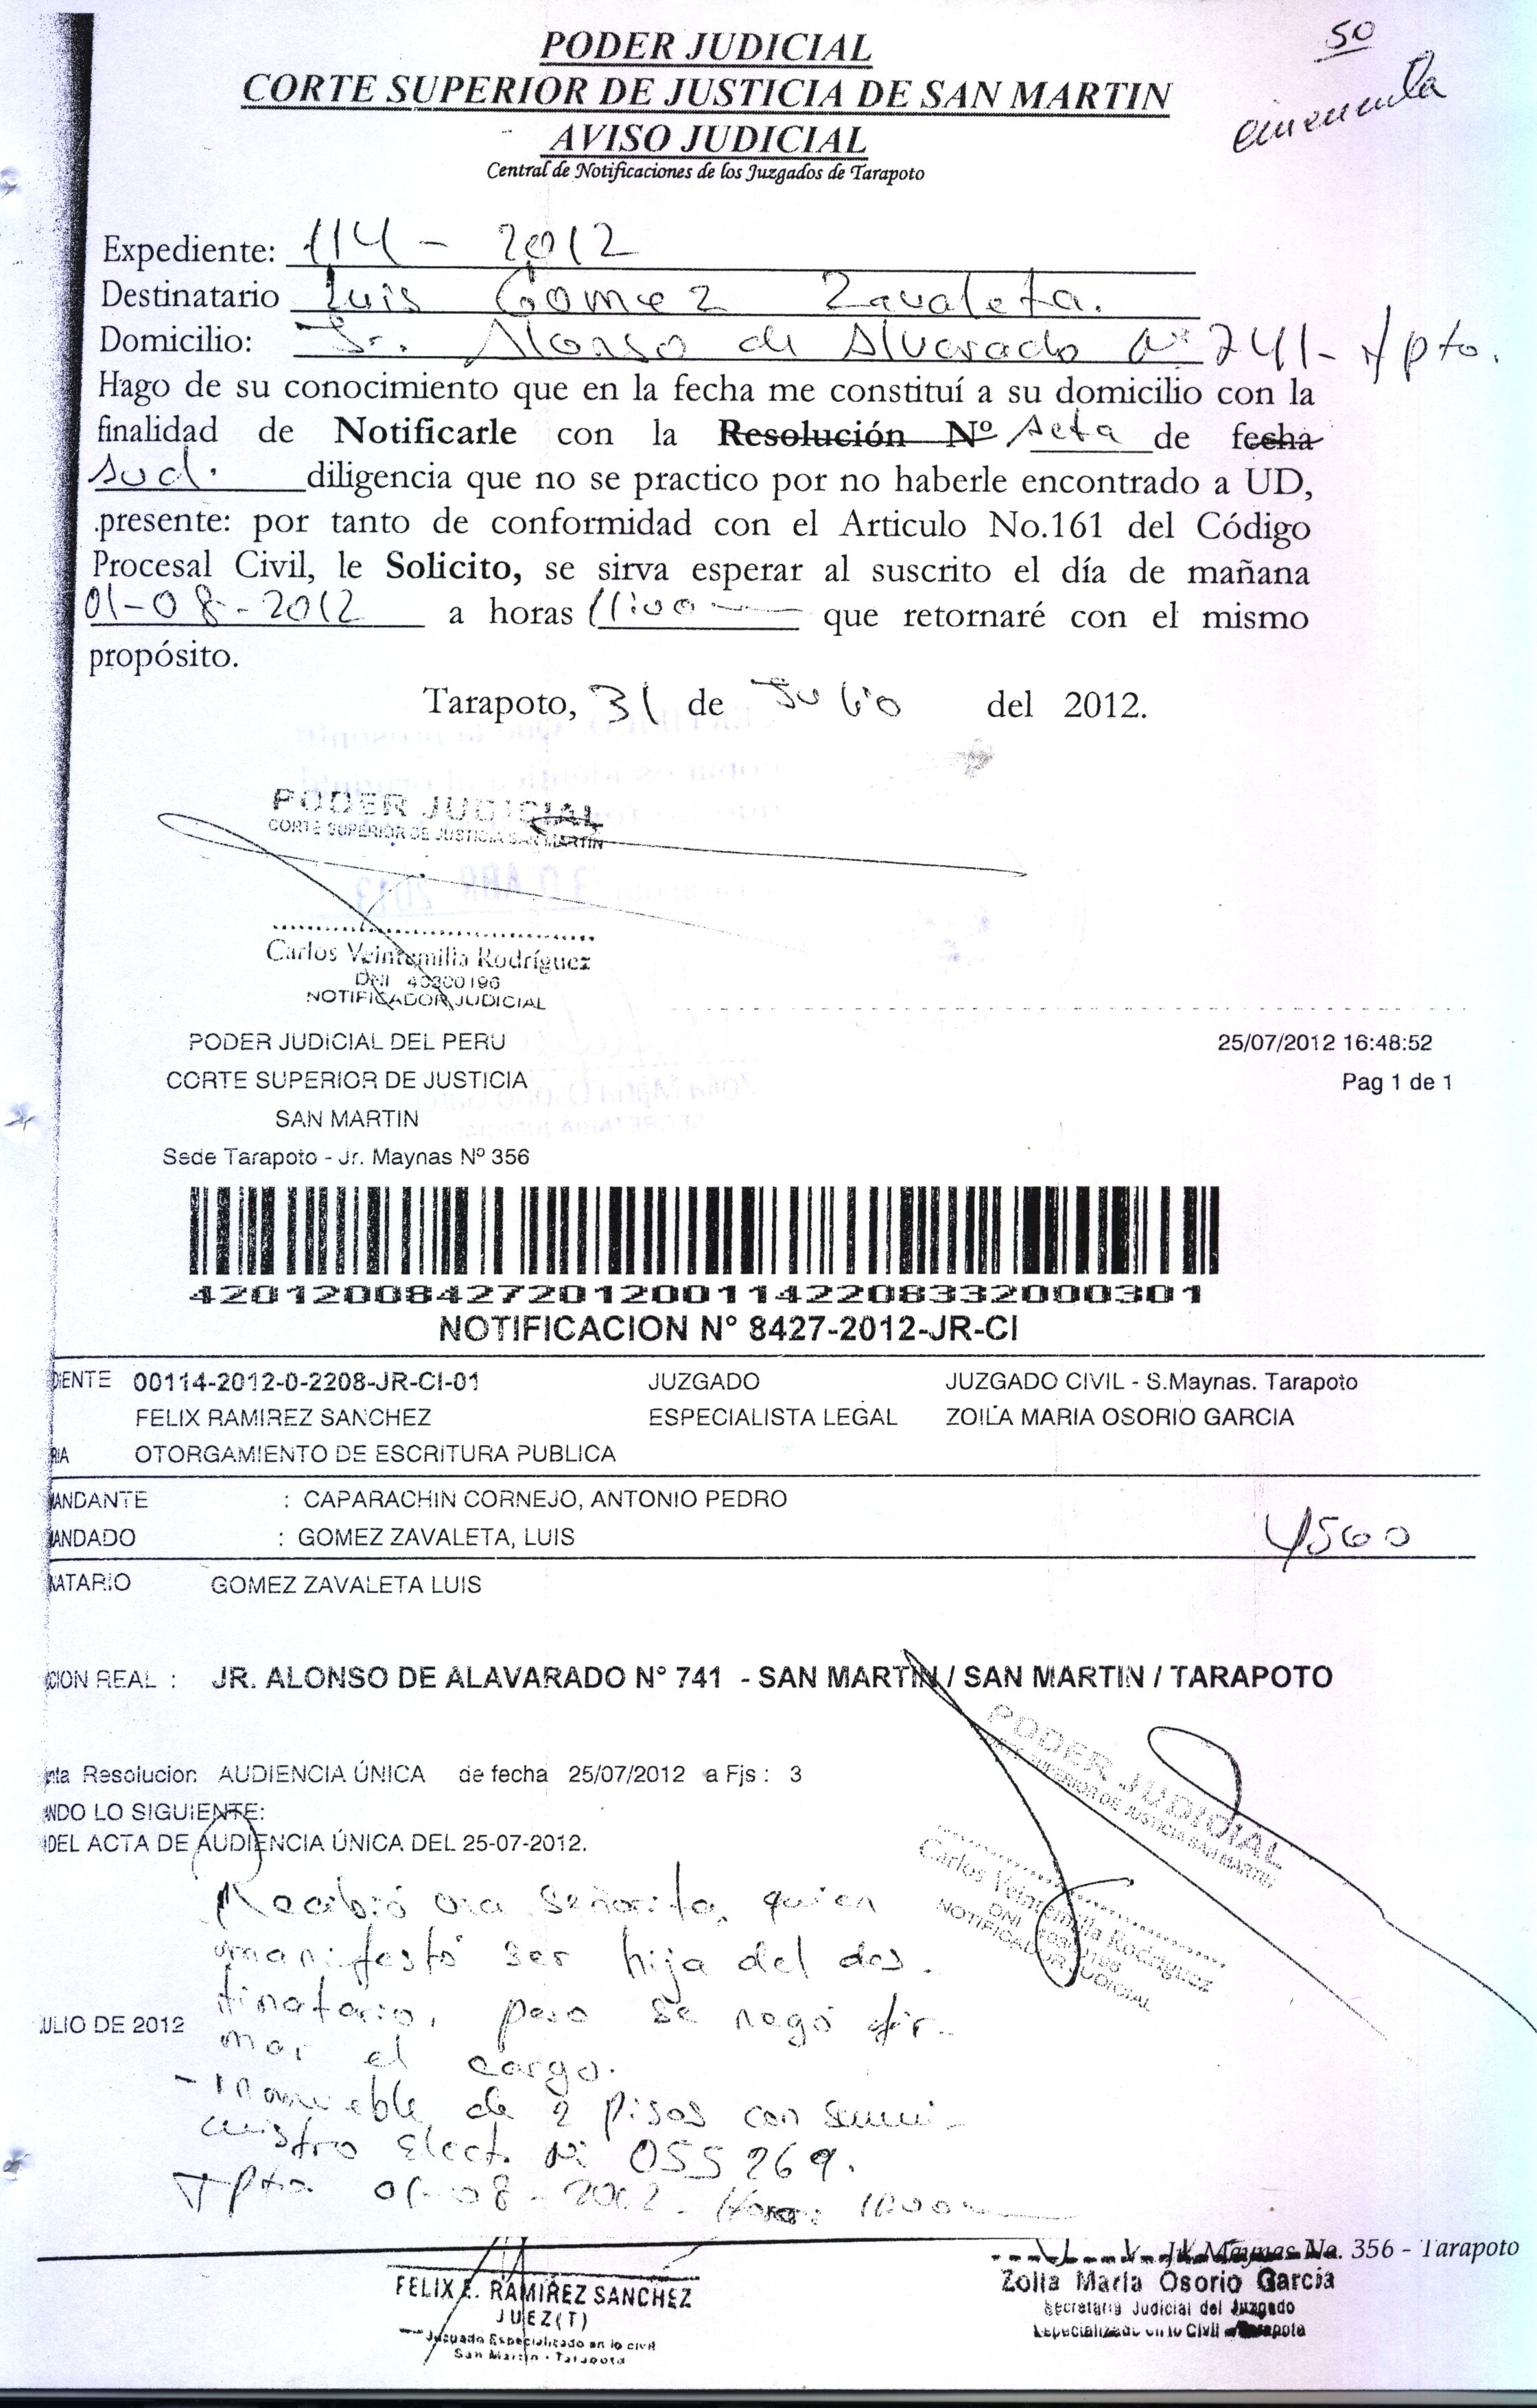 50
cincuenta
PODER JUDICIAL
CORTE SUPERIOR DE JUSTICIA DE SAN MARTIN
AVISO JUDICIAL
Central de Notificaciones de los Juzgados de Tarapoto
Expediente: 114 - 2012
Destinatario Luis Gomez Zavaleta.
Domicilio: Jr. Alonso de Alvarado N° 741- T/pto.
Hago de su conocimiento que en la fecha me constituí a su domicilio con la
finalidad de Notificarle con la Resolución Nº Acta de fecha
Aud. diligencia que no se practico por no haberle encontrado a UD,
.presente: por tanto de conformidad con el Articulo No.161 del Código
Procesal Civil, le Solicito, se sirva esperar al suscrito el día de mañana
01-08-2012 a horas 11:00 que retornaré con el mismo
propósito.
Tarapoto, 31 de Julio del 2012.
PODER JUDICIAL
CORTE SUPERIOR DE JUSTICIA SAN MARTIN
Carlos Veintemilla Rodríguez
DNI 40300196
NOTIFICADOR JUDICIAL
PODER JUDICIAL DEL PERU 25/07/2012 16:48:52
CORTE SUPERIOR DE JUSTICIA Pag 1 de 1
SAN MARTIN
Sede Tarapoto - Jr. Maynas Nº 356
420120084272012001142208332000301
NOTIFICACION N° 8427-2012-JR-CI
DIENTE 00114-2012-0-2208-JR-CI-01 JUZGADO JUZGADO CIVIL - S.Maynas. Tarapoto
FELIX RAMIREZ SANCHEZ ESPECIALISTA LEGAL ZOILA MARIA OSORIO GARCIA
RIA OTORGAMIENTO DE ESCRITURA PUBLICA
ANDANTE : CAPARACHIN CORNEJO, ANTONIO PEDRO
ANDADO : GOMEZ ZAVALETA, LUIS
4560
ATARIO GOMEZ ZAVALETA LUIS
CION REAL : JR. ALONSO DE ALAVARADO N° 741 - SAN MARTIN / SAN MARTIN / TARAPOTO
nta Resolucion AUDIENCIA ÚNICA de fecha 25/07/2012 a Fjs : 3
NDO LO SIGUIENTE:
DEL ACTA DE AUDIENCIA ÚNICA DEL 25-07-2012.
PODER JUDICIAL
CORTE SUPERIOR DE JUSTICIA SAN MARTIN
Carlos Veintemilla Rodríguez
DNI
NOTIFICADOR JUDICIAL
Recibió una señorita, quien
manifestó ser hija del des-
tinatario, pero se negó fir-
ULIO DE 2012
mar el cargo.
- Inmueble de 2 pisos con sumi-
nistro elect. N° 055269.
T/pto 01-08-2012. Hora: 11:00
Jr. Maynas No. 356 - Tarapoto
FELIX E. RAMIREZ SANCHEZ
JUEZ(T)
Juzgado Especializado en lo civil
San Martin - Tarapoto
Zoila María Osorio Garcia
Secretaria Judicial del Juzgado
Especializado en lo Civil - Tarapoto